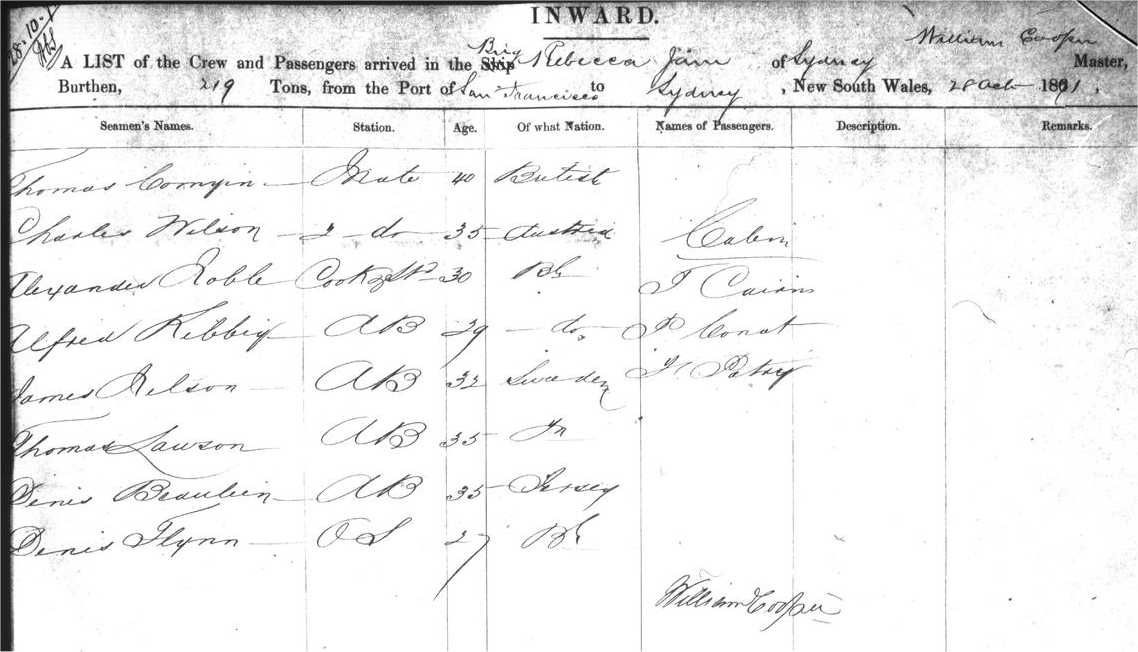 28.10.
INWARD.
William Cooper
A LIST of the Crew and Passengers arrived in the Ship Brig Rebecca Jain of Sydney Master,
Burthen, 219 Tons, from the Port of San Francisco to Sydney, New South Wales, 28 Oct 1871,
Seamen's Names. Station. Age. Of what Nation. Names of Passengers. Description. Remarks.
Thomas Mate 40 British
Charles Wilson 2 do 35 Austria Cabin
Alexander Cook & Std 30 Bh J Cairns
Alfred AB 29 do P
James Nelson AB 32 Sweden
Thomas Lawson AB 35
Denis Beaulien AB 35 Jersey
Denis Flynn OS 27 Bh
William Cooper